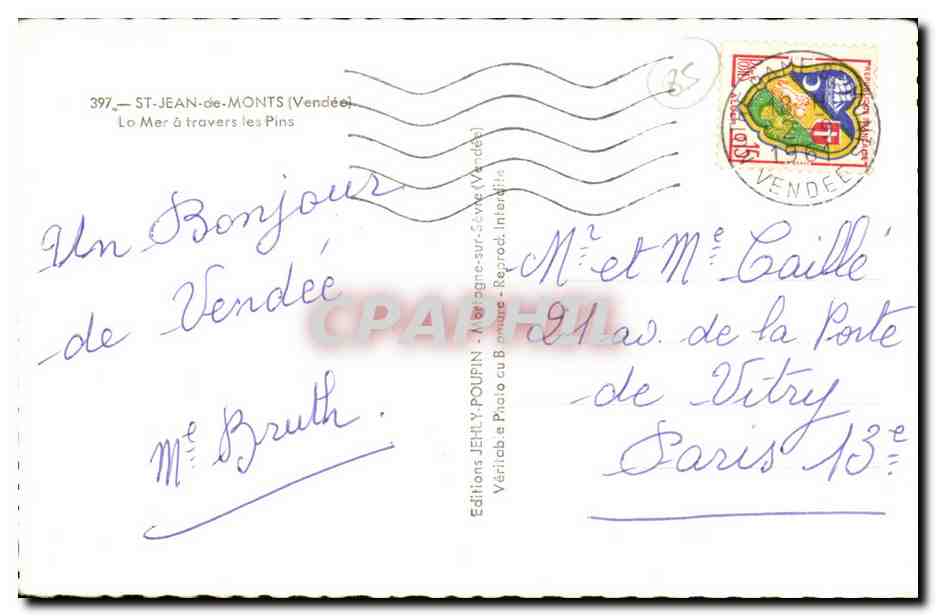 397. — ST-JEAN-de-MONTS (Vendée)
La Mer à travers les Pins
Un Bonjour
de Vendée
Me Bruth.
Editions JEHLY-POUPIN - Mortagne-sur-Sèvre (Vendée)
Véritable Photo au Bromure - Reprod. Interdite
85
REPUBLIQUE FRANÇAISE
ALGER 0,15
1961
VENDEE
Mr et Me Caillé
21 av. de la Porte
de Vitry
Paris 13e
CPAPHIL